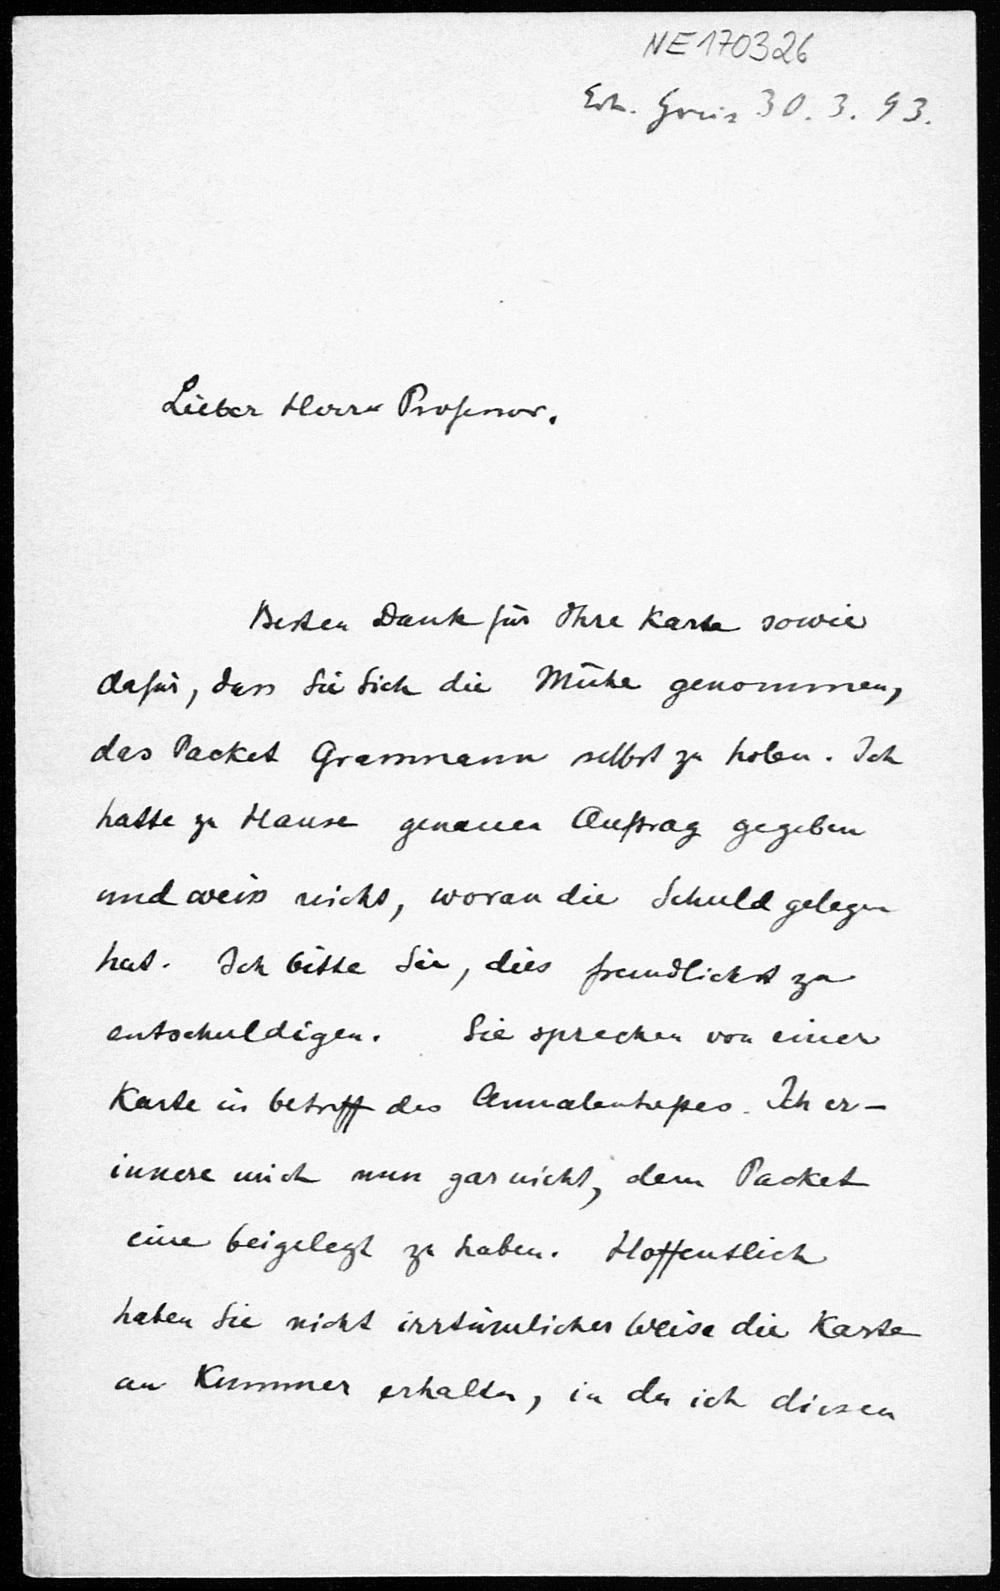 NE170326
30. 3. 93.
Lieber Herr Professor.
Besten Dank für Ihre Karte sowie
dafür, dass Sie Sich die Mühe genommen,
das Packet Grassmann selbst zu holen. Ich
hatte zu Hause genauen Auftrag gegeben
und weiss nicht, woran die Schuld gelegen
hat. Ich bitte Sie, dies freundlichst zu
entschuldigen. Sie sprechen von einer
Karte in betreff des Annalenheftes. Ich er-
innere mich nun gar nicht, dem Packet
eine beigelegt zu haben. Hoffentlich
haben Sie nicht irrtümlicher Weise die Karte
an Kummer erhalten, in der ich diesen